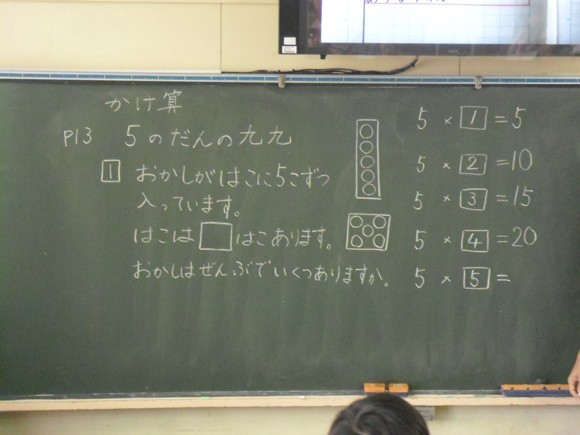 かけ算
P13 5のだんの九九
1 おかしがはこに5こずつ
入っています。
はこは□はこあります。
おかしはぜんぶでいくつありますか。
5 × 1 = 5
5 × 2 = 10
5 × 3 = 15
5 × 4 = 20
5 × 5 =